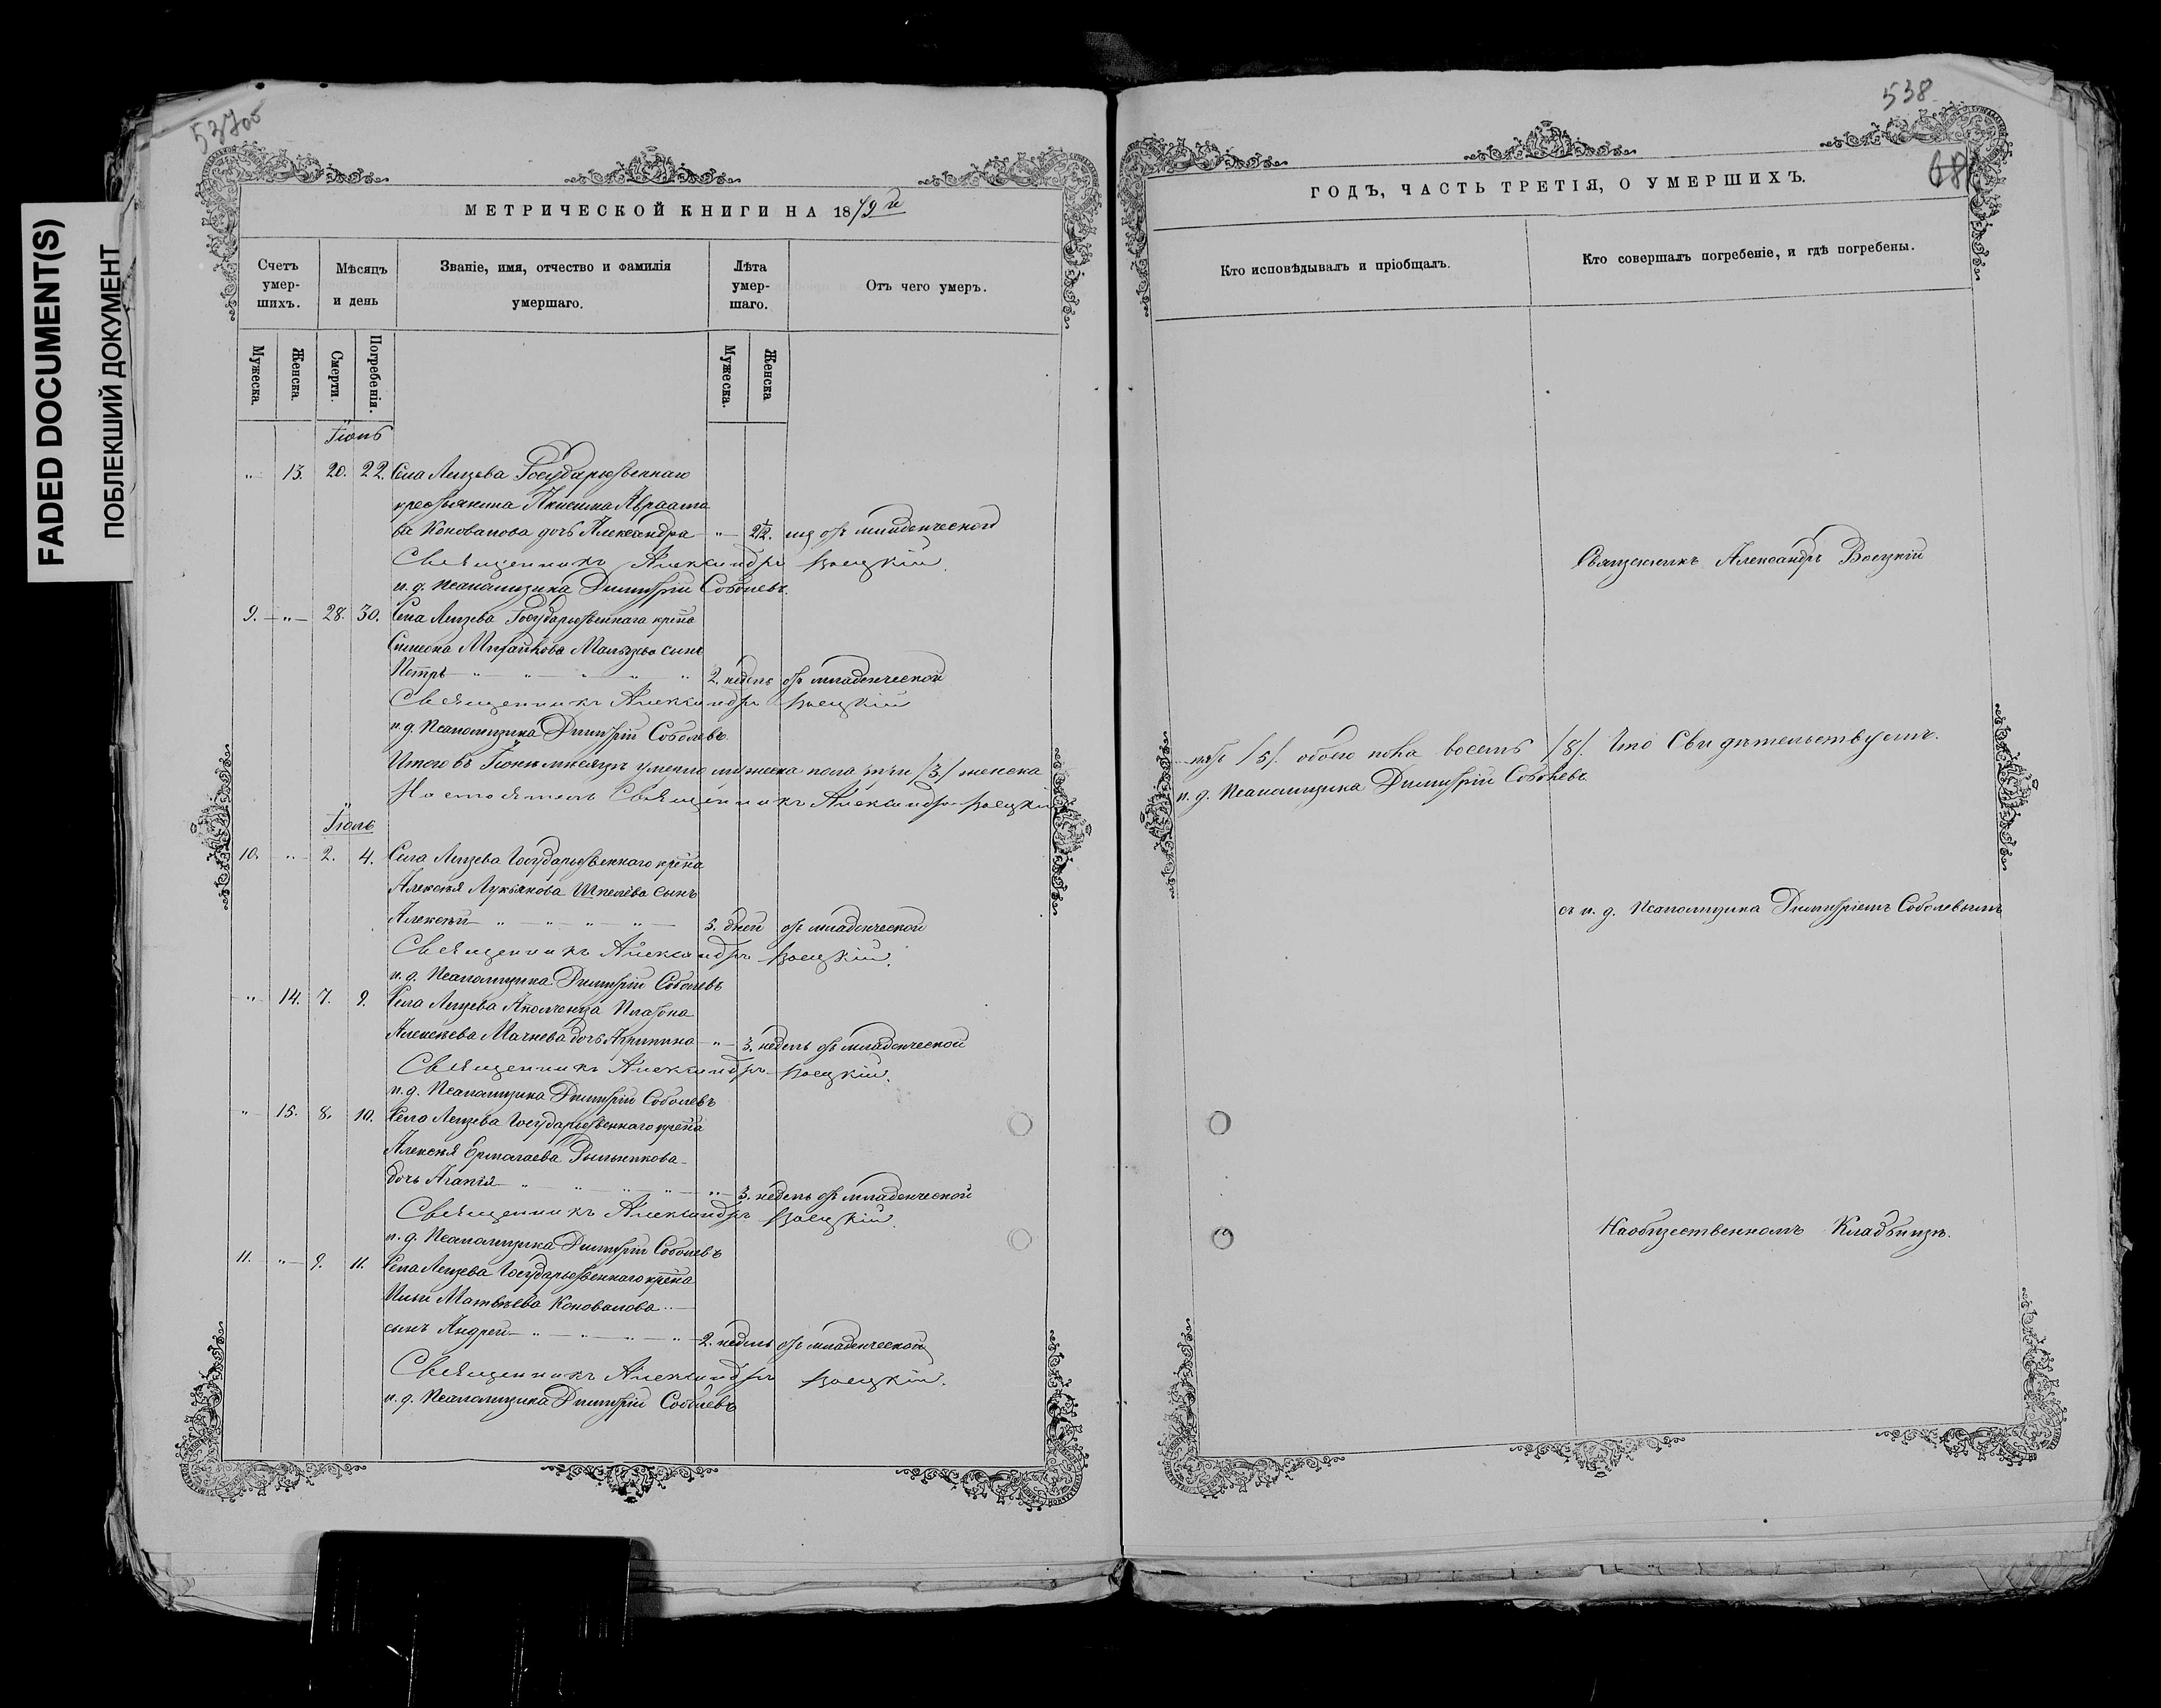 FADED DOCUMENT(S)
ПОБЛЕКШИЙ ДОКУМЕНТ
537об
МЕТРИЧЕСКОЙ КНИГИ НА 1879й
Счетъ умер-шихъ.
Мѣсяцъ и день
Званіе, имя, отчество и фамилія умершаго.
Лѣта умер-шаго.
Отъ чего умеръ.
Мужеска.
Женска.
Смерти.
Погребенія.
Мужеска.
Женска
Іюнь
„ 13. 20. 22. Села Государственнаго
крестьянина Авраамо
ва Коновалова дочь Александра „ 2 1/12. отъ младенческой
Священникъ Александръ Воецкій.
и. д. Псаломщика Димитрій Соболевъ.
9. „ 28. 30. Села Государственнаго крѣна
Симеона сынъ
Петръ „ „ „ „ „ 2. недѣль отъ младенческой
Священникъ Александръ Воецкій
и. д. Псаломщика Димитрій Соболевъ.
Итого въ Іюнѣ мѣсяцѣ умерло мужеска пола три /3/ женска
Настоятель Священникъ Александръ Воецкій
Іюль
10. „ 2. 4. Села Государственнаго крѣна
Алексѣя Лукьянова Шпелева сынъ
Алексѣй „ „ „ „ 5. дней отъ младенческой
Священникъ Александръ Воецкій.
и. д. Псаломщика Димитрій Соболевъ
„ 14. 7. 9. Села Платона
Алексѣева Мачнева дочь Агрипина „ 3. недѣль отъ младенческой
Священникъ Александръ Воецкій.
и. д. Псаломщика Димитрій Соболевъ
„ 15. 8. 10. Села Государственнаго крѣна
Алексѣя Ермолаева
дочь Агапія „ „ „ „ „ 3. недѣль отъ младенческой
Священникъ Александръ Воецкій.
и. д. Псаломщика Димитрій Соболевъ
11. „ 9. 11. Села Государственнаго крѣна
Ильи Матвѣева Коновалова
сынъ Андрей „ „ „ „ 2. недѣль отъ младенческой
Священникъ Александръ Воецкій.
и. д. Псаломщика Димитрій Соболевъ
538
ГОДЪ, ЧАСТЬ ТРЕТІЯ, О УМЕРШИХЪ.
Кто исповѣдывалъ и пріобщалъ.
Кто совершалъ погребеніе, и гдѣ погребены.
Священникъ Александръ Воецкій
пять /5/. обоего пола восемь /8/. Что свидѣтельствуемъ.
и. д. Псаломщика Димитрій Соболевъ
съ и. д. Псаломщика Димитріемъ Соболевымъ
На общественномъ Кладбищѣ.